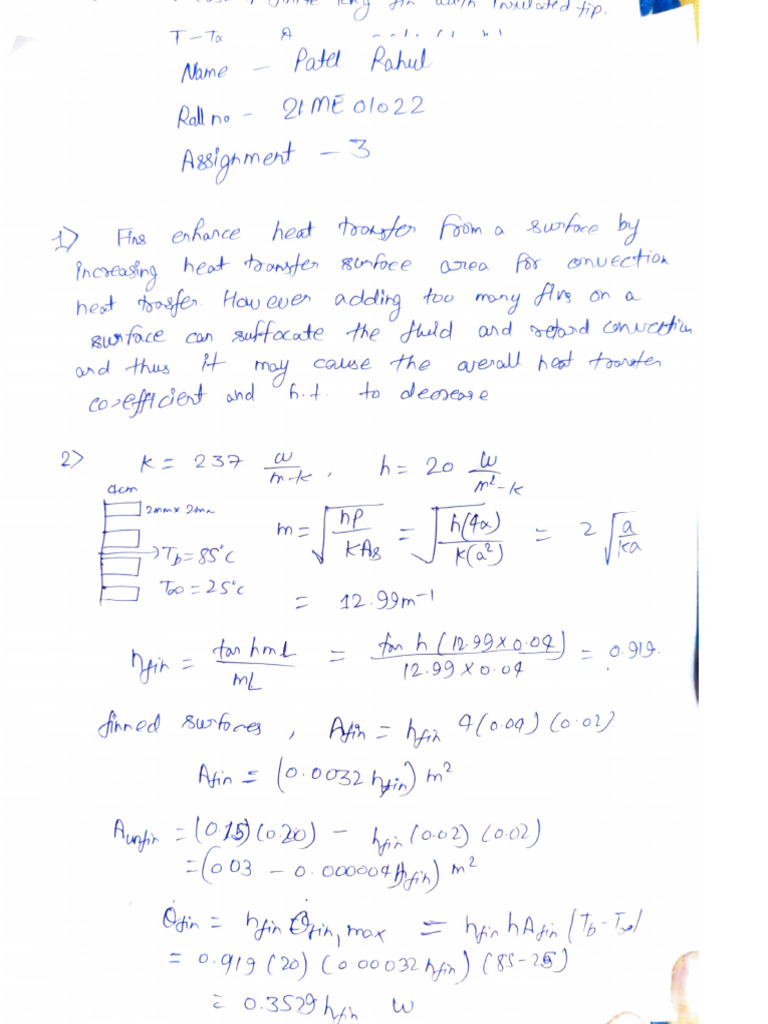 finite long fin with insulated tip.
T - Ta
Name - Patel Rahul
Roll no - 21ME01022
Assignment - 3
1) Fins enhance heat transfer from a surface by
increasing heat transfer surface area for convection
heat trasfer. However adding too many fins on a
surface can suffocate the fluid and retard convection
and thus it may cause the overall heat transfer
co-efficient and h.t. to decrease
2) k = 237 w/m-k , h = 20 W/m²-k
4cm
2mm x 2mm
Tb = 85°C
T∞ = 25°C
m = √(hp/kAs) = √(h(4a)/k(a²)) = 2√(a/ka)
= 12.99m⁻¹
ηfin = tan hmL/mL = tan h(12.99 x 0.04)/12.99 x 0.04 = 0.919.
finned surfaces, Afin = hfin 4(0.04)(0.02)
Afin = (0.0032 hfin) m²
Aunfin = (0.15)(0.20) - hfin (0.02)(0.02)
= (0.03 - 0.000004 hfin) m²
Q̇fin = hfin Q̇fin, max = hfin hAfin (Tb - T∞)
= 0.919 (20) (0.00032 hfin) (85-25)
= 0.3529 hfin W